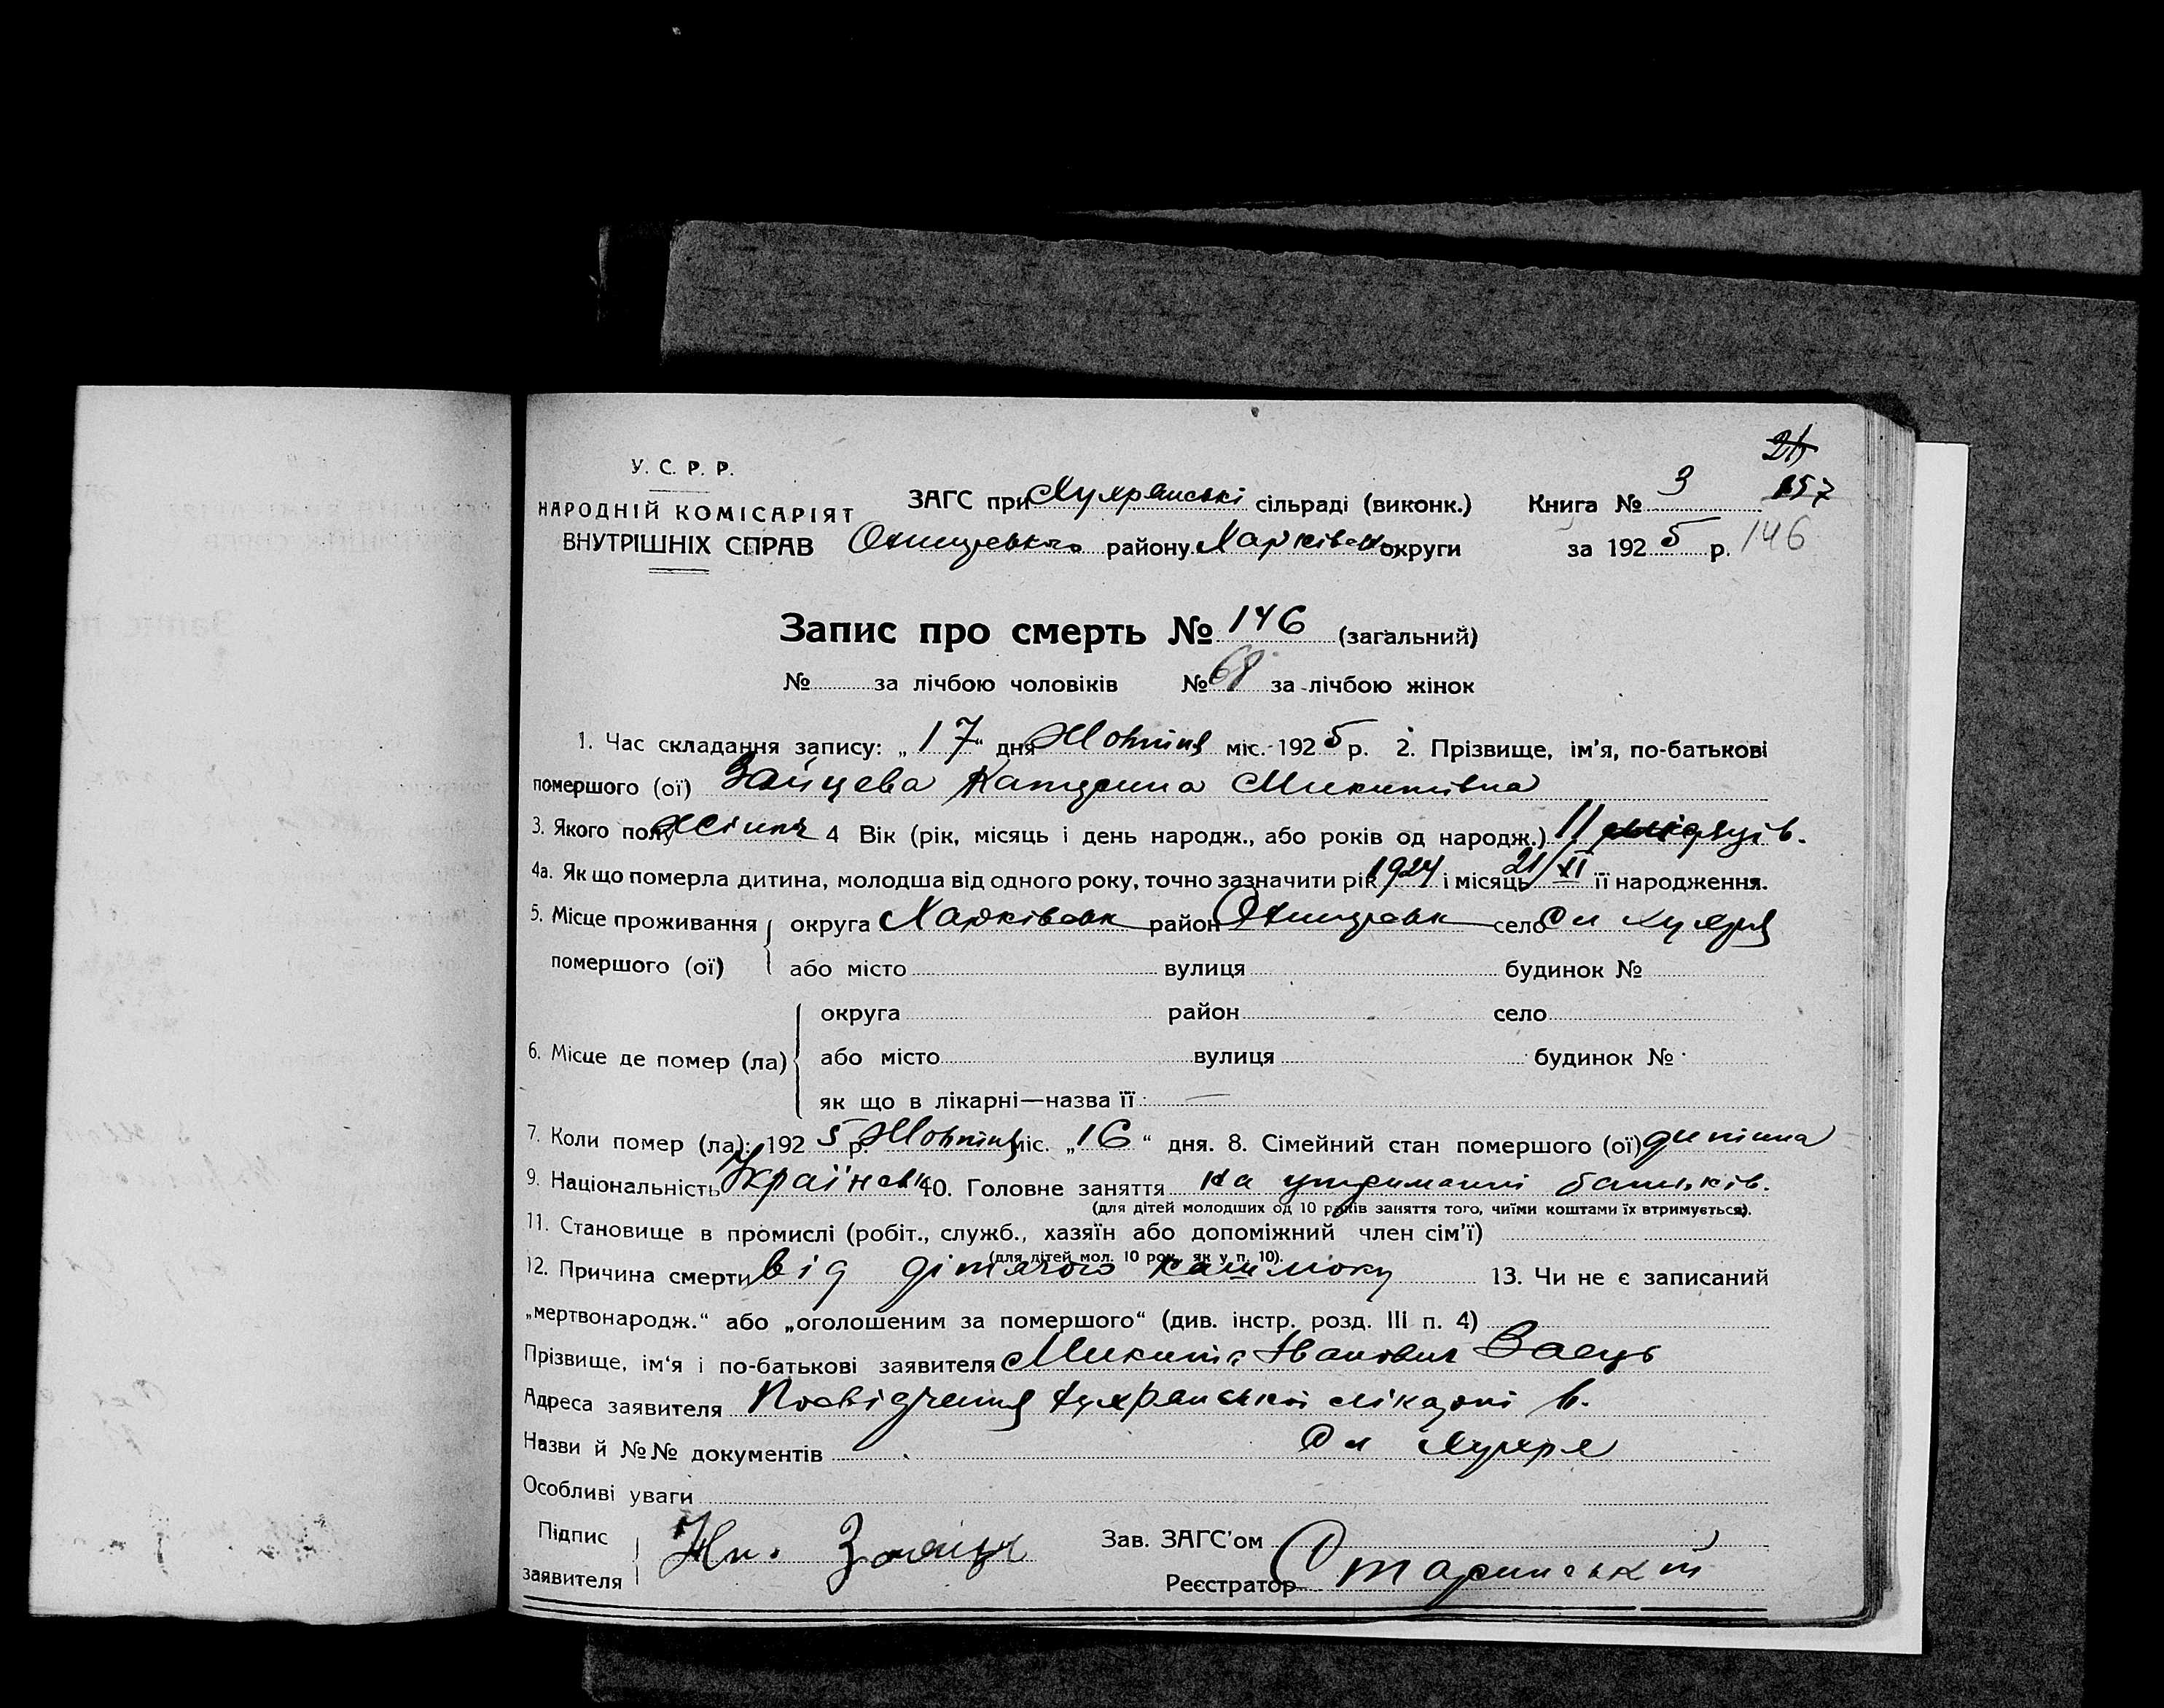 У. С. Р. Р.
НАРОДНІЙ КОМІСАРІЯТ
ВНУТРІШНІХ СПРАВ
ЗАГС при Хухрянські сільраді (виконк.) Книга № 3 157
Охтирського району Харківськ округи за 1925 р. 146
Запис про смерть № 146 (загальний)
№ за лічбою чоловіків № 68 за лічбою жінок
1. Час складання запису: „17“ дня Жовтня міс. 1925 р. 2. Прізвище, ім’я, по-батькові
помершого (ої) Зайцева Катерина Микитівна
3. Якого полу жіноч 4 Вік (рік, місяць і день народж., або років од народж.) 11 місяців.
4а. Як що померла дитина, молодша від одного року, точно зазначити рік 1924 і місяць 21/XI її народження.
5. Місце проживання округа Харківськ район Охтирськ село Сл Хухря
помершого (ої) або місто вулиця будинок №
округа район село
6. Місце де помер (ла) або місто вулиця будинок №
як що в лікарні—назва її: —
7. Коли помер (ла): 1925 р. Жовтня міс. „16“ дня. 8. Сімейний стан помершого (ої) дитина
9. Національність Українськ 10. Головне заняття на утриманні батьків.
(для дітей молодших од 10 років заняття того, чиїми коштами їх втримується).
11. Становище в промислі (робіт., служб., хазяїн або допоміжний член сім’ї)
(для дітей мол. 10 рок. як у п. 10).
12. Причина смерти від дітячого кашлюку 13. Чи не є записаний
„мертвонародж.“ або „оголошеним за помершого“ (див. інстр. розд. III п. 4)
Прізвище, ім‘я і по-батькові заявителя Микита Іванович Заець
Адреса заявителя Посвідчення Хухранської лікарні в.
Назви й №№ документів Сл Хухря
Особливі уваги
Підпис
заявителя
Зав. ЗАГС’ом
Реєстратор